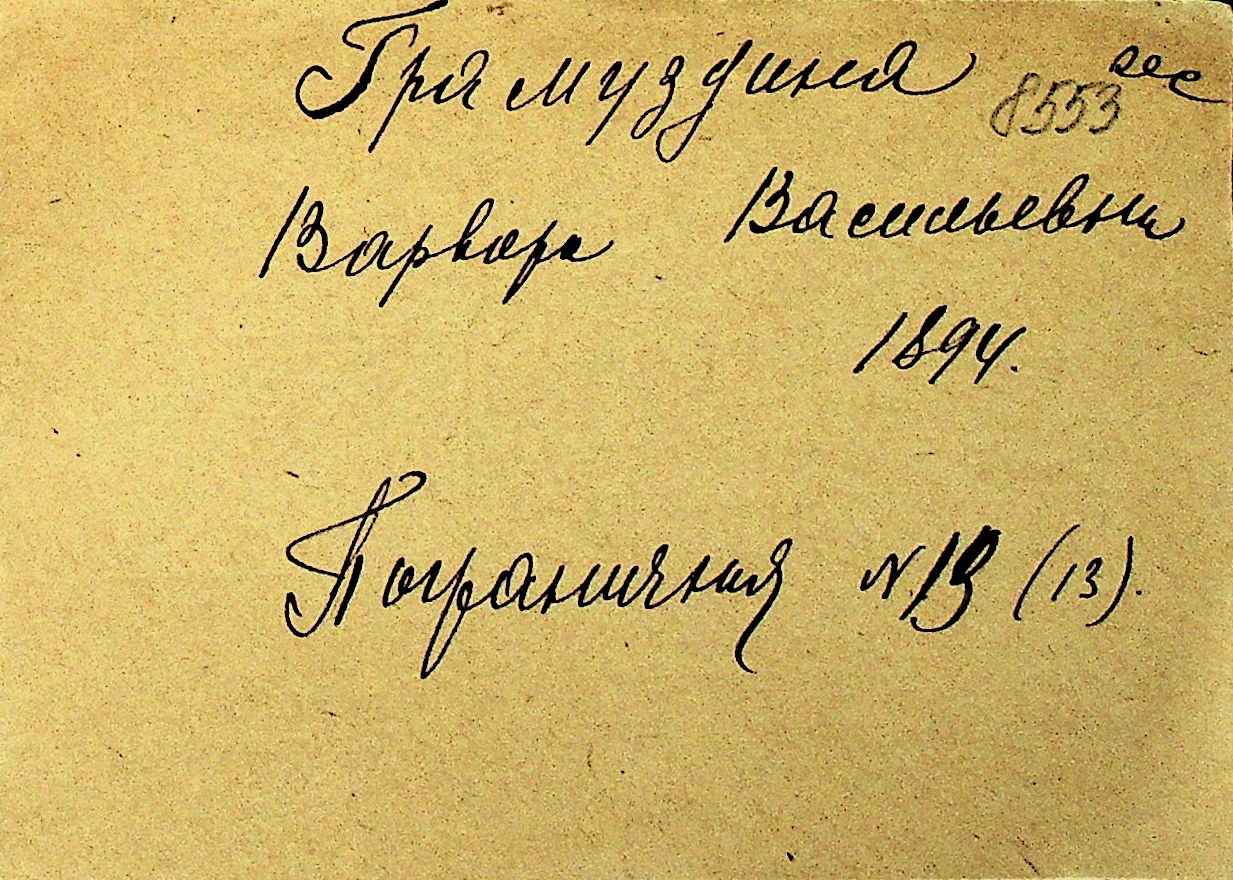 Грамуздина
8553
Варвара Васильевна
1894.
Пограничная N 13 (13).